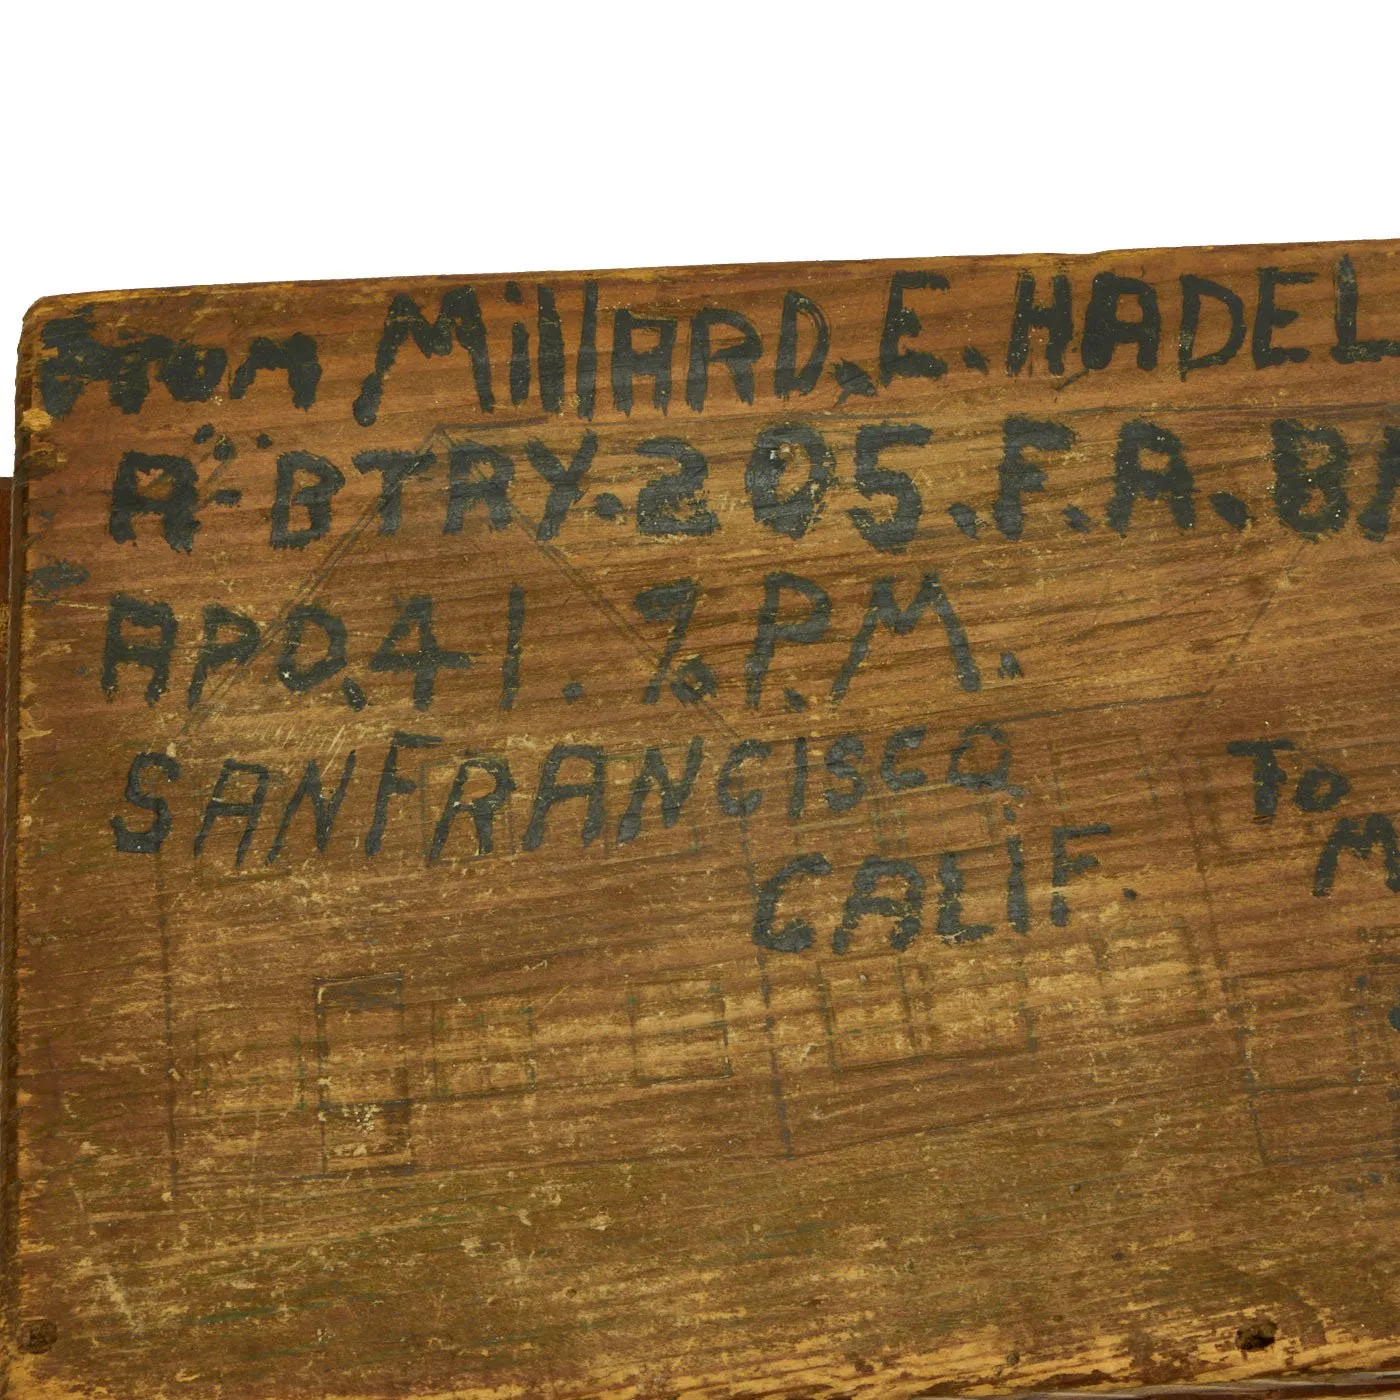 From Millard.E.HADEL
A-BTRY.205.F.A.BA
APO.41. % P.M.
SANFRANCISCO
CALIF.
To
M